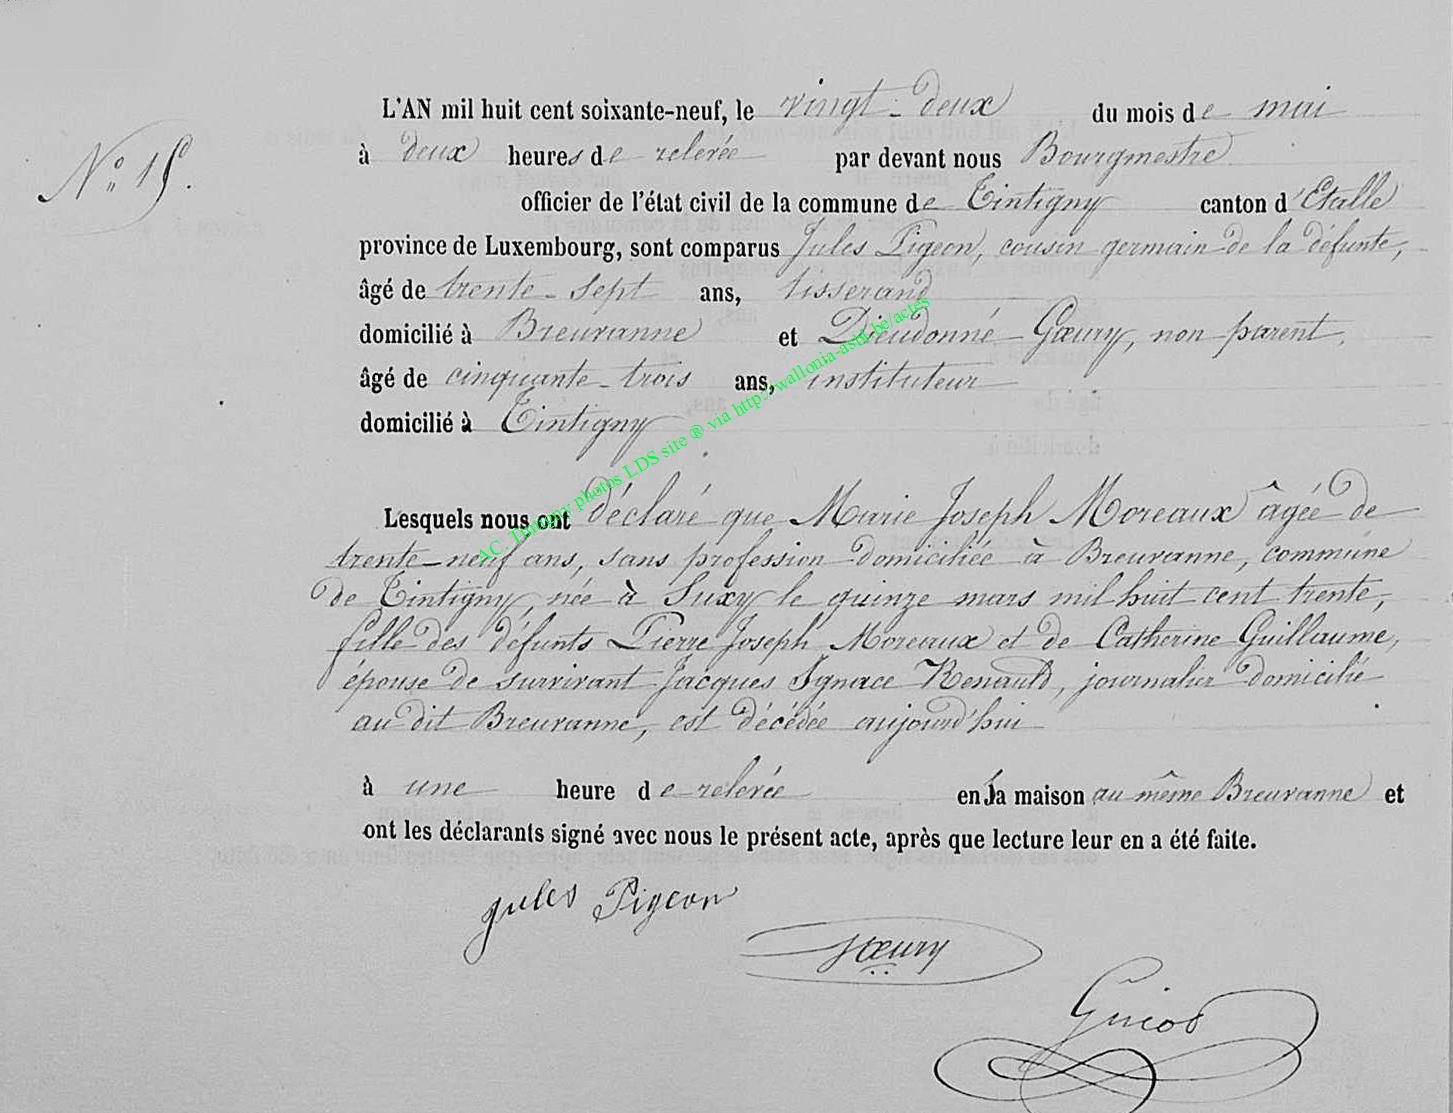 L'AN mil huit cent soixante-neuf, le vingt-deux du mois de mai
N° 15.
à deux heures de relevée par devant nous Bourgmestre
officier de l'état civil de la commune de Tintigny canton d'Etalle
province de Luxembourg, sont comparus Jules Pigeon, cousin germain de la défunte,
âgé de trente-sept ans, tisserand
domicilié à Breuvanne et Dieudonné Gœury, non parent,
âgé de cinquante-trois ans, instituteur
domicilié à Tintigny
AC. Tintigny photos LDS site ® via http://wallonia-asbl.be/actes
Lesquels nous ont déclaré que Marie Joseph Moreaux âgée de
trente-neuf ans, sans profession domiciliée à Breuvanne, commune
de Tintigny, née à Suxy le quinze mars mil huit cent trente,
fille des défunts Pierre Joseph Moreaux et de Catherine Guillaume,
épouse de survivant Jacques Ignace Renauld, journalier domicilié
au dit Breuvanne, est décédée aujourd'hui
à une heure de relevée en la maison au même Breuvanne et
ont les déclarants signé avec nous le présent acte, après que lecture leur en a été faite.
Jules Pigeon
Gœury